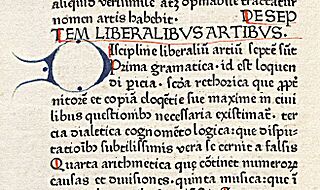 aliquid verisimile atqꝫ opinabile tractatur
nomen artis habebit. DE SEP
TEM LIBERALIBUS ARTIBUS.
Discipline liberaliū artiū septē sūt
Prima gramatica. id est loquen
di pīcia. scḋa rethorica que ꝓpt̄
nitorē et copiā eloq̄tie sue maxime in ciui
libus questionibꝰ necessaria existimaꝰ. ter
cia dialetica cognomēto logica: que dispu
tatiōibꝰ subtilissimis vera secernit a falsis
Quarta arithmetica que cōtinet numeroꝝ
causas et diuisiones. quinta musica: que ī